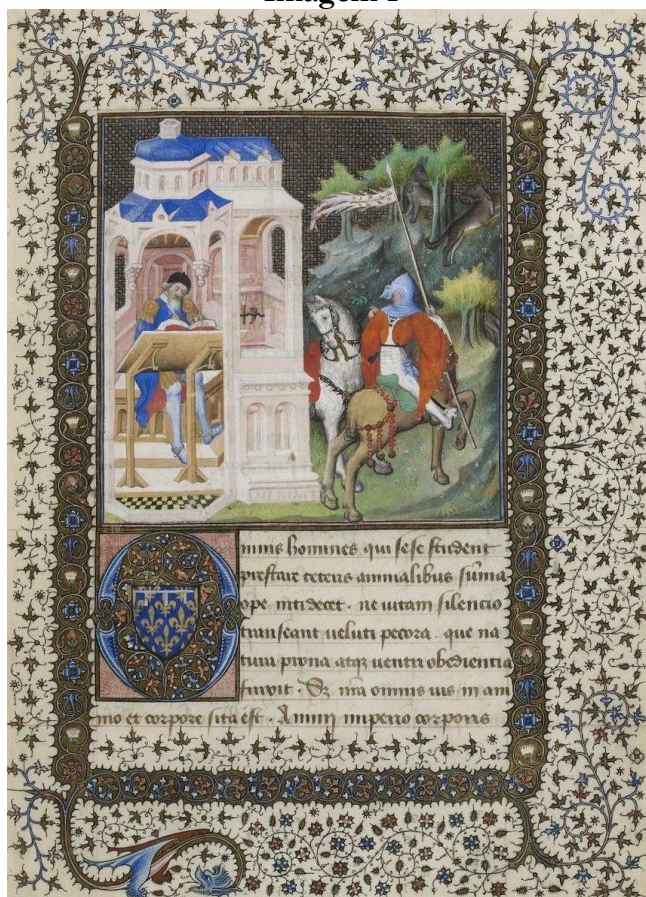 Imagem
Omnis homines qui sese student
prestare ceteris animalibus suma
ope niti decet . ne uitam silencio
transeant ueluti pecora . que na
tura prona atqz uentri obediencia
finxit . Sz nra omnis uis in ani
mo et corpore sita est . Animi imperio corporis